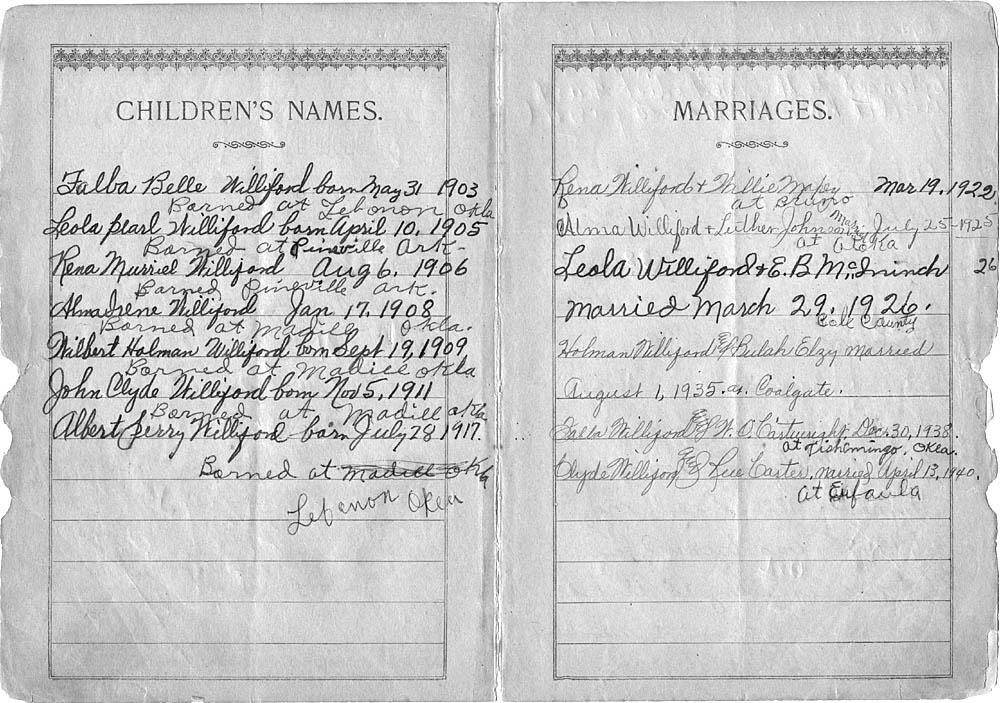 CHILDREN'S NAMES.
Falba Belle Williford born May 31 1903
Borned at Lebonon Okla
Leola pearl Williford born April 10, 1905
Borned at Pineville Ark-
Rena Murriel Williford Aug 6, 1906
Borned Pineville Ark.
Alma Irene Williford Jan 17, 1908
Borned at Madill Okla.
Wilbert Holman Williford born Sept 19, 1909
Borned at Madill Okla
John Clyde Williford born Nov 5, 1911
Borned at Madill Okla
Albert Jerry Williford born July 28 1917.
Borned at Madill Okla
Lebenon Okla
MARRIAGES.
Rena Williford & Willie Maxey Mar 19, 1922,
at
Alma Williford & Luther Johnson July 25-1925
at Atoka
Leola Williford & E. B McIninch 26
married March 29, 1926.
Cole County
Holman Williford & Bulah Elzy married
August 1, 1935. at Coalgate.
Falba Williford & W. O. Cartwright Dec. 30, 1938.
at Tishemingo, Okla.
Clyde Williford & Lee Carter, married April 13, 1940.
at Eufaula